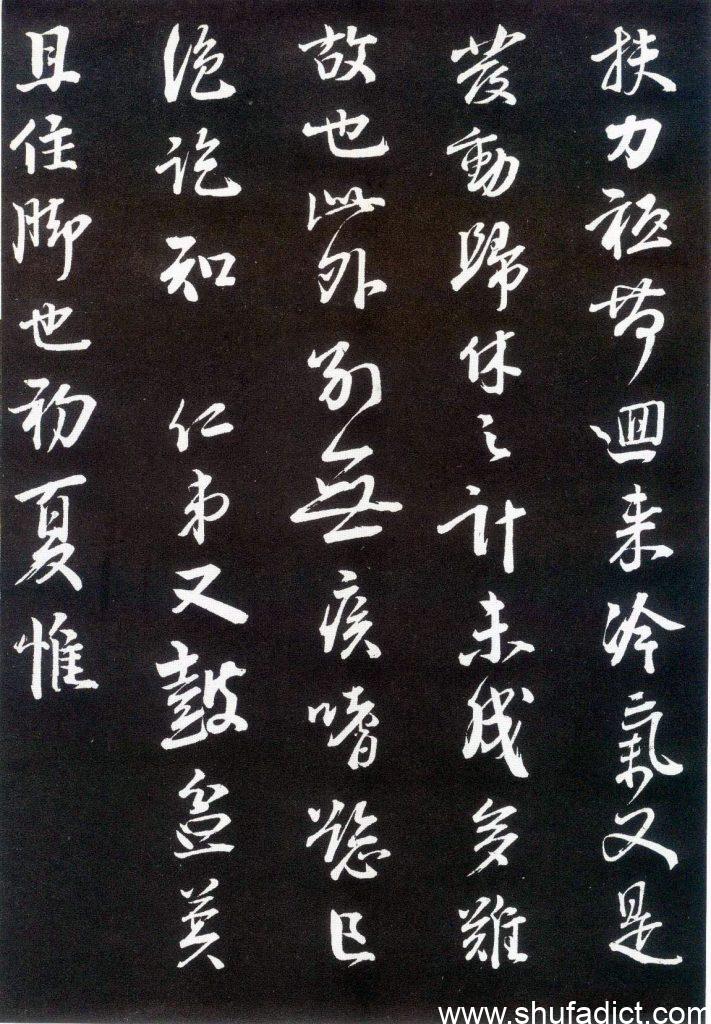 扶力祗帶迴来冷氣又是
發動歸休之計未成多難
故也此外別無疾嗜慾已
絶訖知 仁弟又鼓盆莫
且住脚也初夏惟
www.shufadict.com